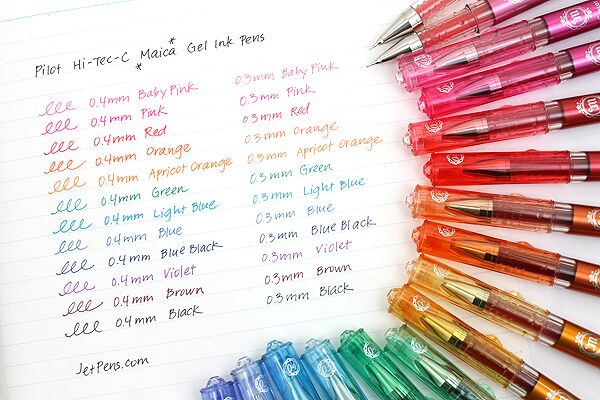 Pilot Hi-Tec-C Maica Gel Ink Pens
0.4mm Baby Pink 0.3mm Baby Pink
0.4mm Pink 0.3mm Pink
0.4mm Red 0.3mm Red
0.4mm Orange 0.3mm Orange
0.4mm Apricot Orange 0.3mm Apricot Orange
0.4mm Green 0.3mm Green
0.4mm Light Blue 0.3mm Light Blue
0.4mm Blue 0.3mm Blue
0.4mm Blue Black 0.3mm Blue Black
0.4mm Violet 0.3mm Violet
0.4mm Brown 0.3mm Brown
0.4mm Black 0.3mm Black
JetPens.com